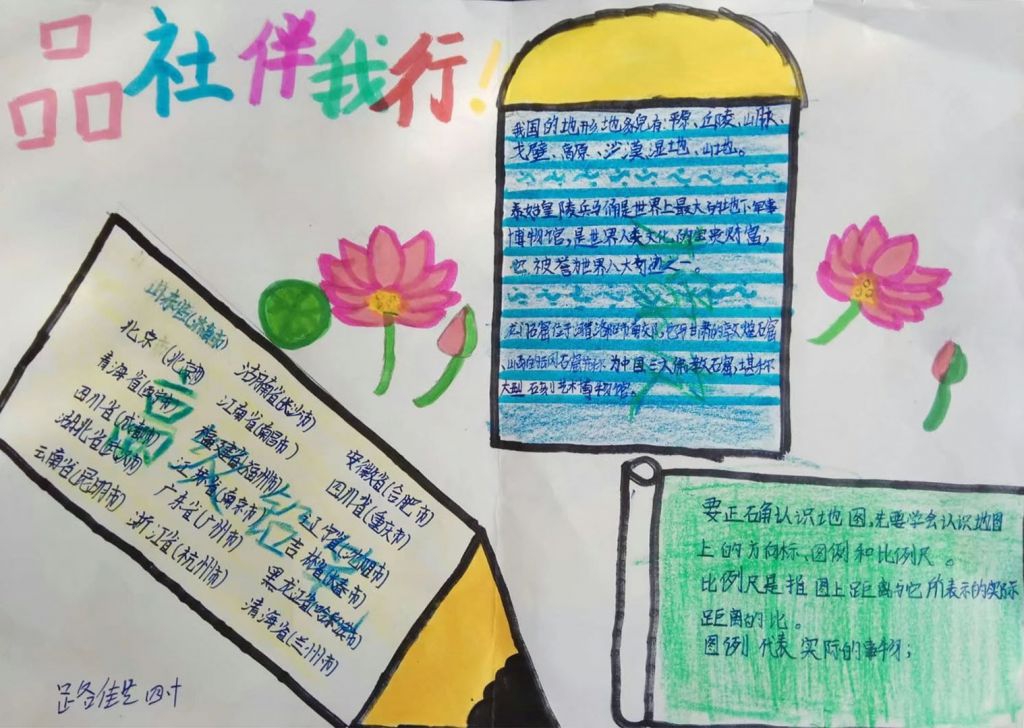 品社伴我行!
我国的地形地貌有平原、丘陵、山脉、
戈壁、高原、沙漠、湿地、山地。
秦始皇陵兵马俑是世界上最大的地下军事
博物馆,是世界人类文化的宝贵财富,
它被誉为世界八大奇迹之一。
龙门石窟位于河南洛阳市南郊,它与甘肃的敦煌石窟
、山西的云冈石窟并称为中国三大佛教石窟,堪称
大型石刻艺术博物馆。
山东省(济南市)
北京(北京)
青海省(西宁市)
四川省(成都市)
湖北省(武汉市)
云南省(昆明市)
湖南省(长沙市)
江南省(南昌市)
福建省(福州市)
江苏省(南京市)
广东省(广州市)
浙江省(杭州市)
安徽省(合肥市)
四川省(重庆市)
辽宁省(沈阳市)
吉林省(长春市)
黑龙江省(哈尔滨市)
青海省(兰州市)
要正确认识地图,先要学会认识地图
上的方向标、图例和比例尺。
比例尺是指图上距离与它所表示的实际
距离的比。
图例代表实际的事物;
路佳芝 四十